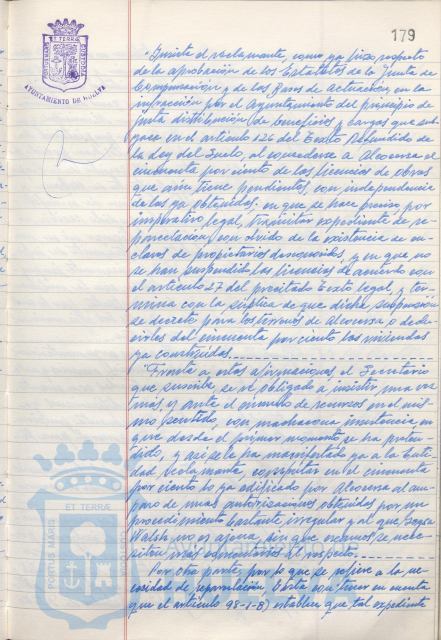 179
ET TERRÆ
AYUNTAMIENTO DE HUELVA
"Insiste el reclamante, como ya hizo respecto
de la aprobación de los Estatutos de la Junta de
Compensación y de las Bases de Actuación, en la
infracción por el Ayuntamiento del principio de
justa distribución de beneficios y cargas que sub-
yace en el artículo 126 del Texto Refundido de
la Ley del Suelo, al concederse a Alcoresa el
cincuenta por ciento de las licencias de obras
que aún tiene pendientes, con independencia
de las ya obtenidas; en que se hace preciso por
imperativo legal, tramitar expediente de re-
parcelación, con olvido de la existencia de en-
claves de propietarios desconocidos, y en que no
se han suspendido las licencias de acuerdo con
el artículo 27 del precitado Texto legal, y ter-
mina con la súplica de que dicha suspensión
se decrete para los terrenos de Alcoresa o de
del cincuenta por ciento las viviendas
ya construidas.
"Frente a estas afirmaciones, el Secretario
que suscribe se ve obligado a insistir una vez
más, y ante el cúmulo de recursos en el mis-
mo sentido, con machacona insistencia en
que desde el primer momento se ha preten-
dido, y así se le ha manifestado ya a la Enti-
dad reclamante, computar en el cincuenta
por ciento lo ya edificado por Alcoresa al am-
paro de unas autorizaciones obtenidas por un
procedimiento bastante irregular y al que
Walsh no es ajena, sin que creamos se nece-
siten más comentarios al respecto.
Por otra parte, por lo que se refiere a la ne-
cesidad de reparcelación, basta con tener en cuenta
que el artículo 98-1-B) establece que tal expediente
ET TERRÆ
PORTUS MARIS
CUSTODIA